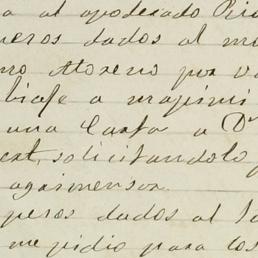 a al apoderado
pesos dados al
mo Moreno por
biaje a mapimi
una Carta a Dn
ext, solicitandolo
agrimensor.
pesos dados al
me pidio para los